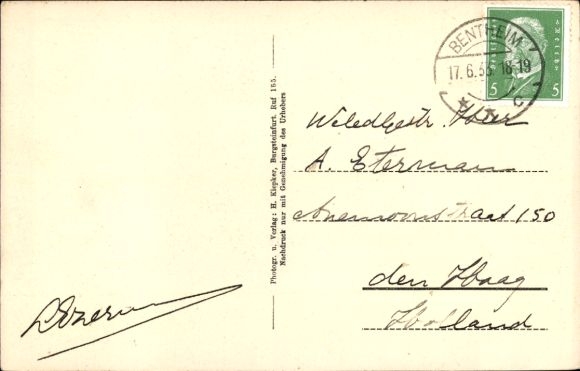 BENTHEIM
17.6.33. 18-19
C
DEUTSCHES REICH
5 5
Photogr. u. Verlag: H. Klepker, Burgsteinfurt. Ruf 165.
Nachdruck nur mit Genehmigung des Urhebers
Weledlgestr. Heer
A. Eterman
Anemoonstraat 150
den Haag
Holland